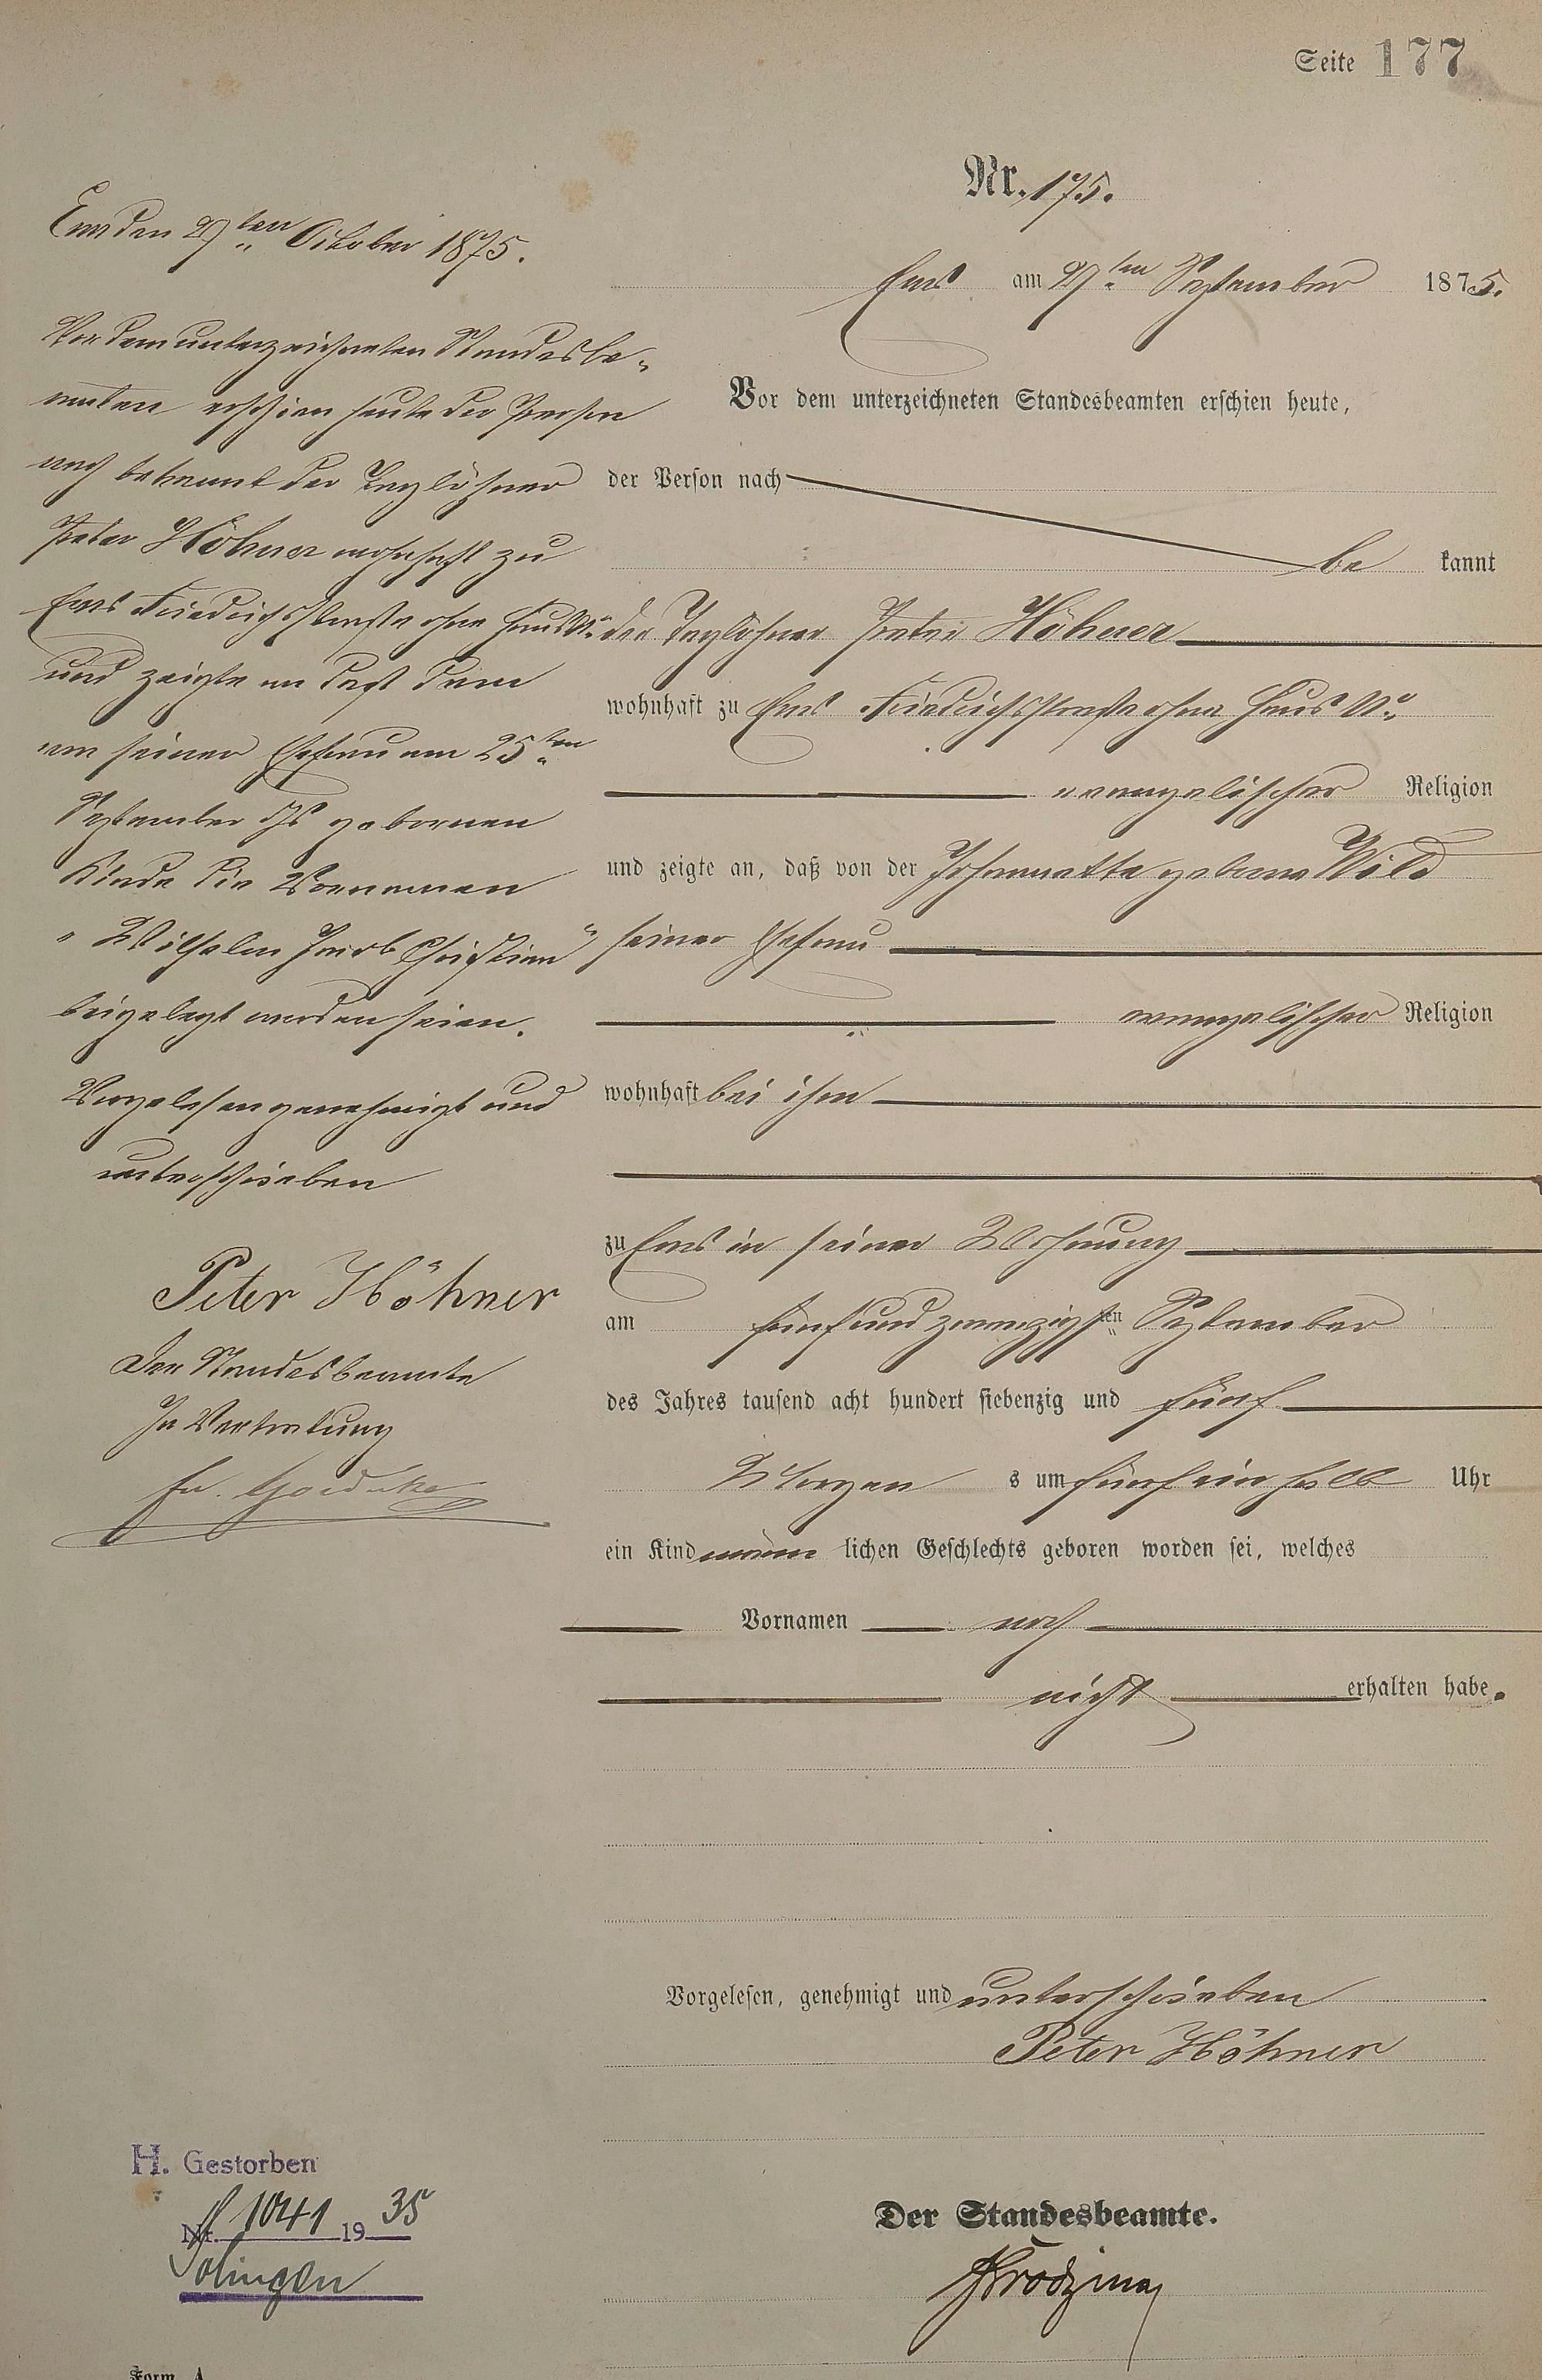 Seite 177
Nr. 175.
Ems am 27ten September 1875.
Vor dem unterzeichneten Standesbeamten erschien heute,
der Person nach
be kannt
der Taglöhner Peter Höhner
wohnhaft zu Ems Friedrichsstraße ohne Haus No.
evangelischer Religion
und zeigte an, daß von der Johannette geborne Wild
seiner Ehefrau
evangelischer Religion
wohnhaft bei ihm
zu Ems in seiner Wohnung
am fünfundzwanzigsten September
des Jahres tausend acht hundert siebenzig und fünf
Morgen s um fünf ein halb Uhr
ein Kind männ lichen Geschlechts geboren worden sei, welches
Vornamen noch
nicht erhalten habe.
Vorgelesen, genehmigt und unterschrieben
Peter Höhner
Der Standesbeamte.
Ems den 27ten October 1875.
Vor dem unterzeichneten Standesbe-
amten erschien heute der Person
nach bekannt der Taglöhner
Peter Höhner wohnhaft zu
Ems Friedrichsstraße ohne Haus No.
und zeigte an daß dem
von seiner Ehefrau am 25ten
September djs gebornen
Kinde die Vornamen
"Wilhelm Jacob Christian"
beigelegt worden seien.
Vorgelesen genehmigt und
unterschrieben
Peter Höhner
Der Standesbeamte
In Vertretung
H. Gestorben
Nr. 1041 1935
Solingen
Form. A.